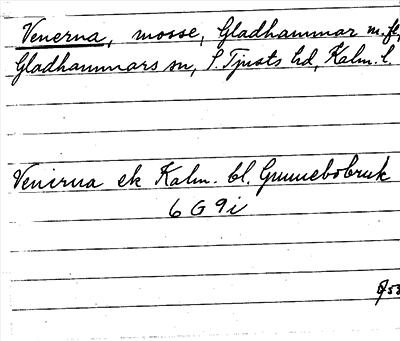 Venerna, mosse, Gladhammar m.fl.,
Gladhammars sn, S. Tjusts hd, Kalm. l.
Venerna ek Kalm. bl. Gunnebobruk
6 G 9 i